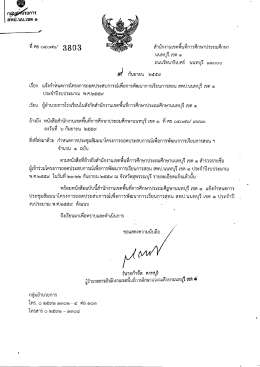 กลุ่มอำนวยการ
สพป.นบ.เขต ๑
ที่ ศธ ๐๔๐๗๙/ 3803
สำนักงานเขตพื้นที่การศึกษาประถมศึกษา
นนทบุรี เขต ๑
ถนนรัตนาธิเบศร์ นนทบุรี ๑๑๐๐๐
กันยายน ๒๕๕๗
เรื่อง แจ้งกำหนดการโครงการถอดประสบการณ์เพื่อการพัฒนาการเรียนการสอน สพป.นนทบุรี เขต ๑
ประจำปีงบประมาณ พ.ศ.๒๕๕๗
เรียน ผู้อำนวยการโรงเรียนในสังกัดสำนักงานเขตพื้นที่การศึกษาประถมศึกษานนทบุรี เขต ๑
อ้างถึง หนังสือสำนักงานเขตพื้นที่การศึกษาประถมศึกษานนทบุรี เขต ๑ ที่ ศธ ๐๔๐๗๙/
ลงวันที่ ๒ กันยายน ๒๕๕๗
สิ่งที่ส่งมาด้วย กำหนดการประชุมสัมมนาโครงการถอดประสบการณ์เพื่อการพัฒนาการเรียนการสอน ฯ
จำนวน ๑ ฉบับ
ตามหนังสือที่อ้างถึงสำนักงานเขตพื้นที่การศึกษาประถมศึกษานนทบุรี เขต ๑ สำรวจรายชื่อ
ผู้เข้าร่วมโครงการถอดประสบการณ์เพื่อการพัฒนาการเรียนการสอน สพป.นนทบุรี เขต ๑ ประจำปีงบประมาณ
พ.ศ.๒๕๕๗ ในวันที่ กันยายน ๒๕๕๗ ณ จังหวัดสุพรรณบุรี รายละเอียดแจ้งแล้วนั้น
พร้อมหนังสือฉบับนี้สำนักงานเขตพื้นที่การศึกษาประถมศึกษานนทบุรี เขต ๑ แจ้งกำหนดการ
ประชุมสัมมนาโครงการถอดประสบการณ์เพื่อการพัฒนาการเรียนการสอน สพป.นนทบุรี เขต ๑ ประจำปี
งบประมาณ พ.ศ.๒๕๕๗ ดังแนบ
จึงเรียนมาเพื่อทราบและดำเนินการ
ขอแสดงความนับถือ
ผู้อำนวยการสำนักงานเขตพื้นที่การศึกษาประถมศึกษานนทบุรี เขต ๑
กลุ่มอำนวยการ
โทร. ๐ ๒๕๙๑ ต่อ ๑๐๓
โทรสาร ๐ ๒๕๙๑